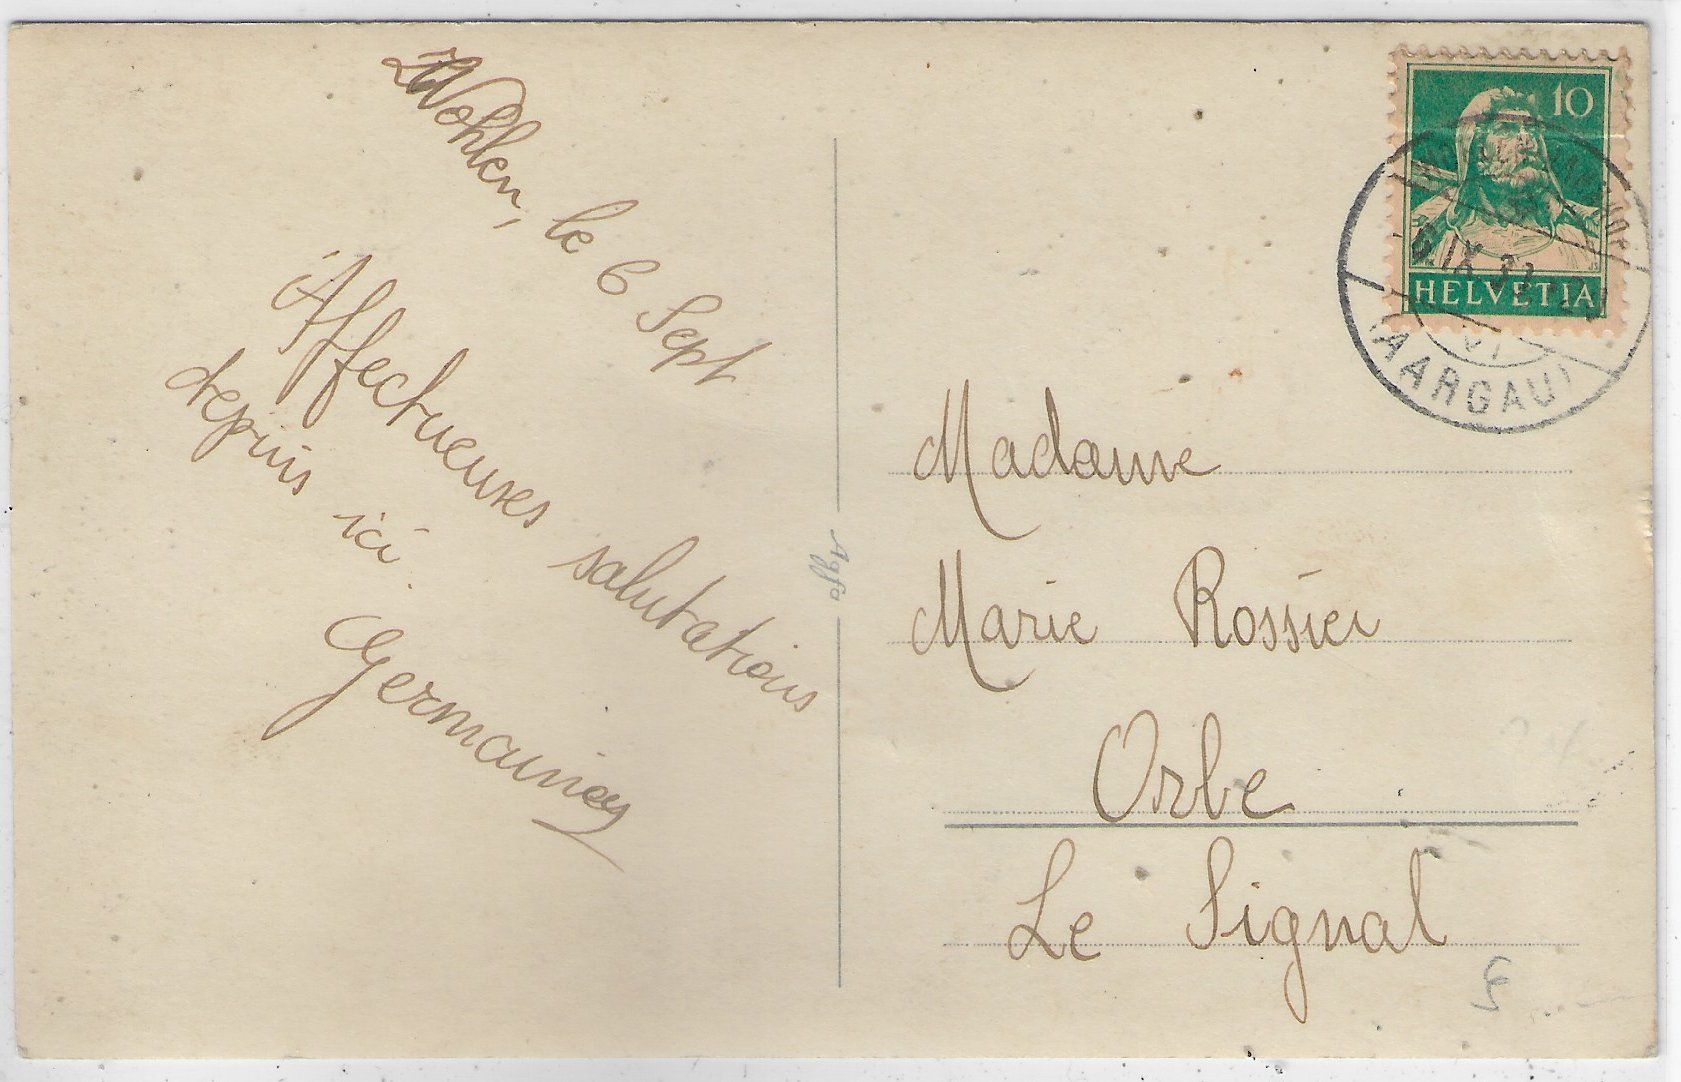 Wohlen, le 6 Sept
Affectueuses salutations
depuis ici.
Germaine
Agfa
10
HELVETIA
6.IX.
VI
(AARGAU)
Madame
Marie Rossier
Orbe
Le Signal